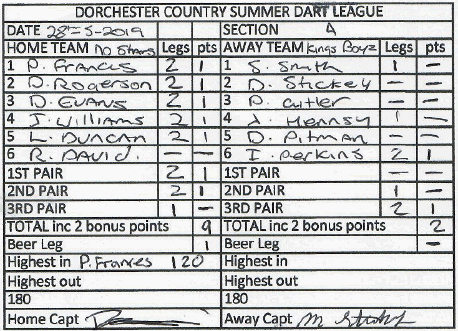 DORCHESTER COUNTRY SUMMER DART LEAGUE
DATE 28-5-2019 SECTION A
HOME TEAM No Stars Legs pts AWAY TEAM Kings Boyz Legs pts
1 P. Francis 2 1 1 S. Smith 1 -
2 D. Rogerson 2 1 2 D. Stickey - -
3 D. EVANS 2 1 3 P. Cutler - -
4 J. Williams 2 1 4 J. Hennsy 1 -
5 L. DUNCAN 2 1 5 D. Pitman - -
6 R. DAVID. - - 6 I. Perkins 2 1
1ST PAIR 2 1 1ST PAIR - -
2ND PAIR 2 1 2ND PAIR 1 -
3RD PAIR 1 - 3RD PAIR 2 1
TOTAL inc 2 bonus points 9 TOTAL inc 2 bonus points 2
Beer Leg 1 Beer Leg -
Highest in P. Frances 120 Highest in
Highest out Highest out
180 180
Home Capt Away Capt M